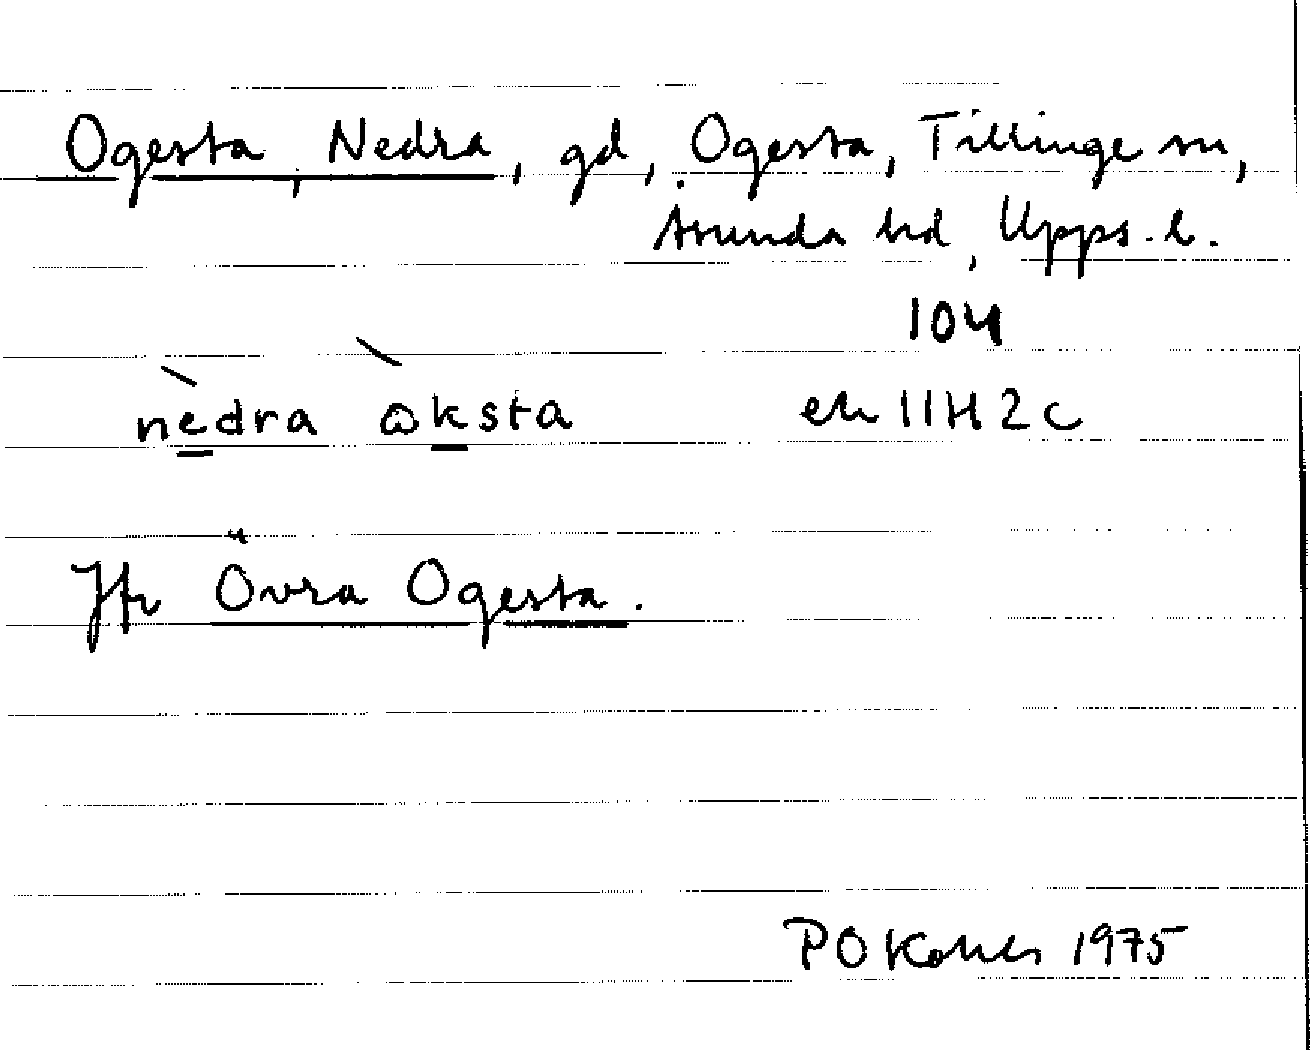 Ogesta, Nedra, gd, Ogesta, Tillinge sn,
Åsunda hd, Upps. l.
104
nèdra ὼksta ek 11H2c
Jfr Övra Ogesta.
P O 1975